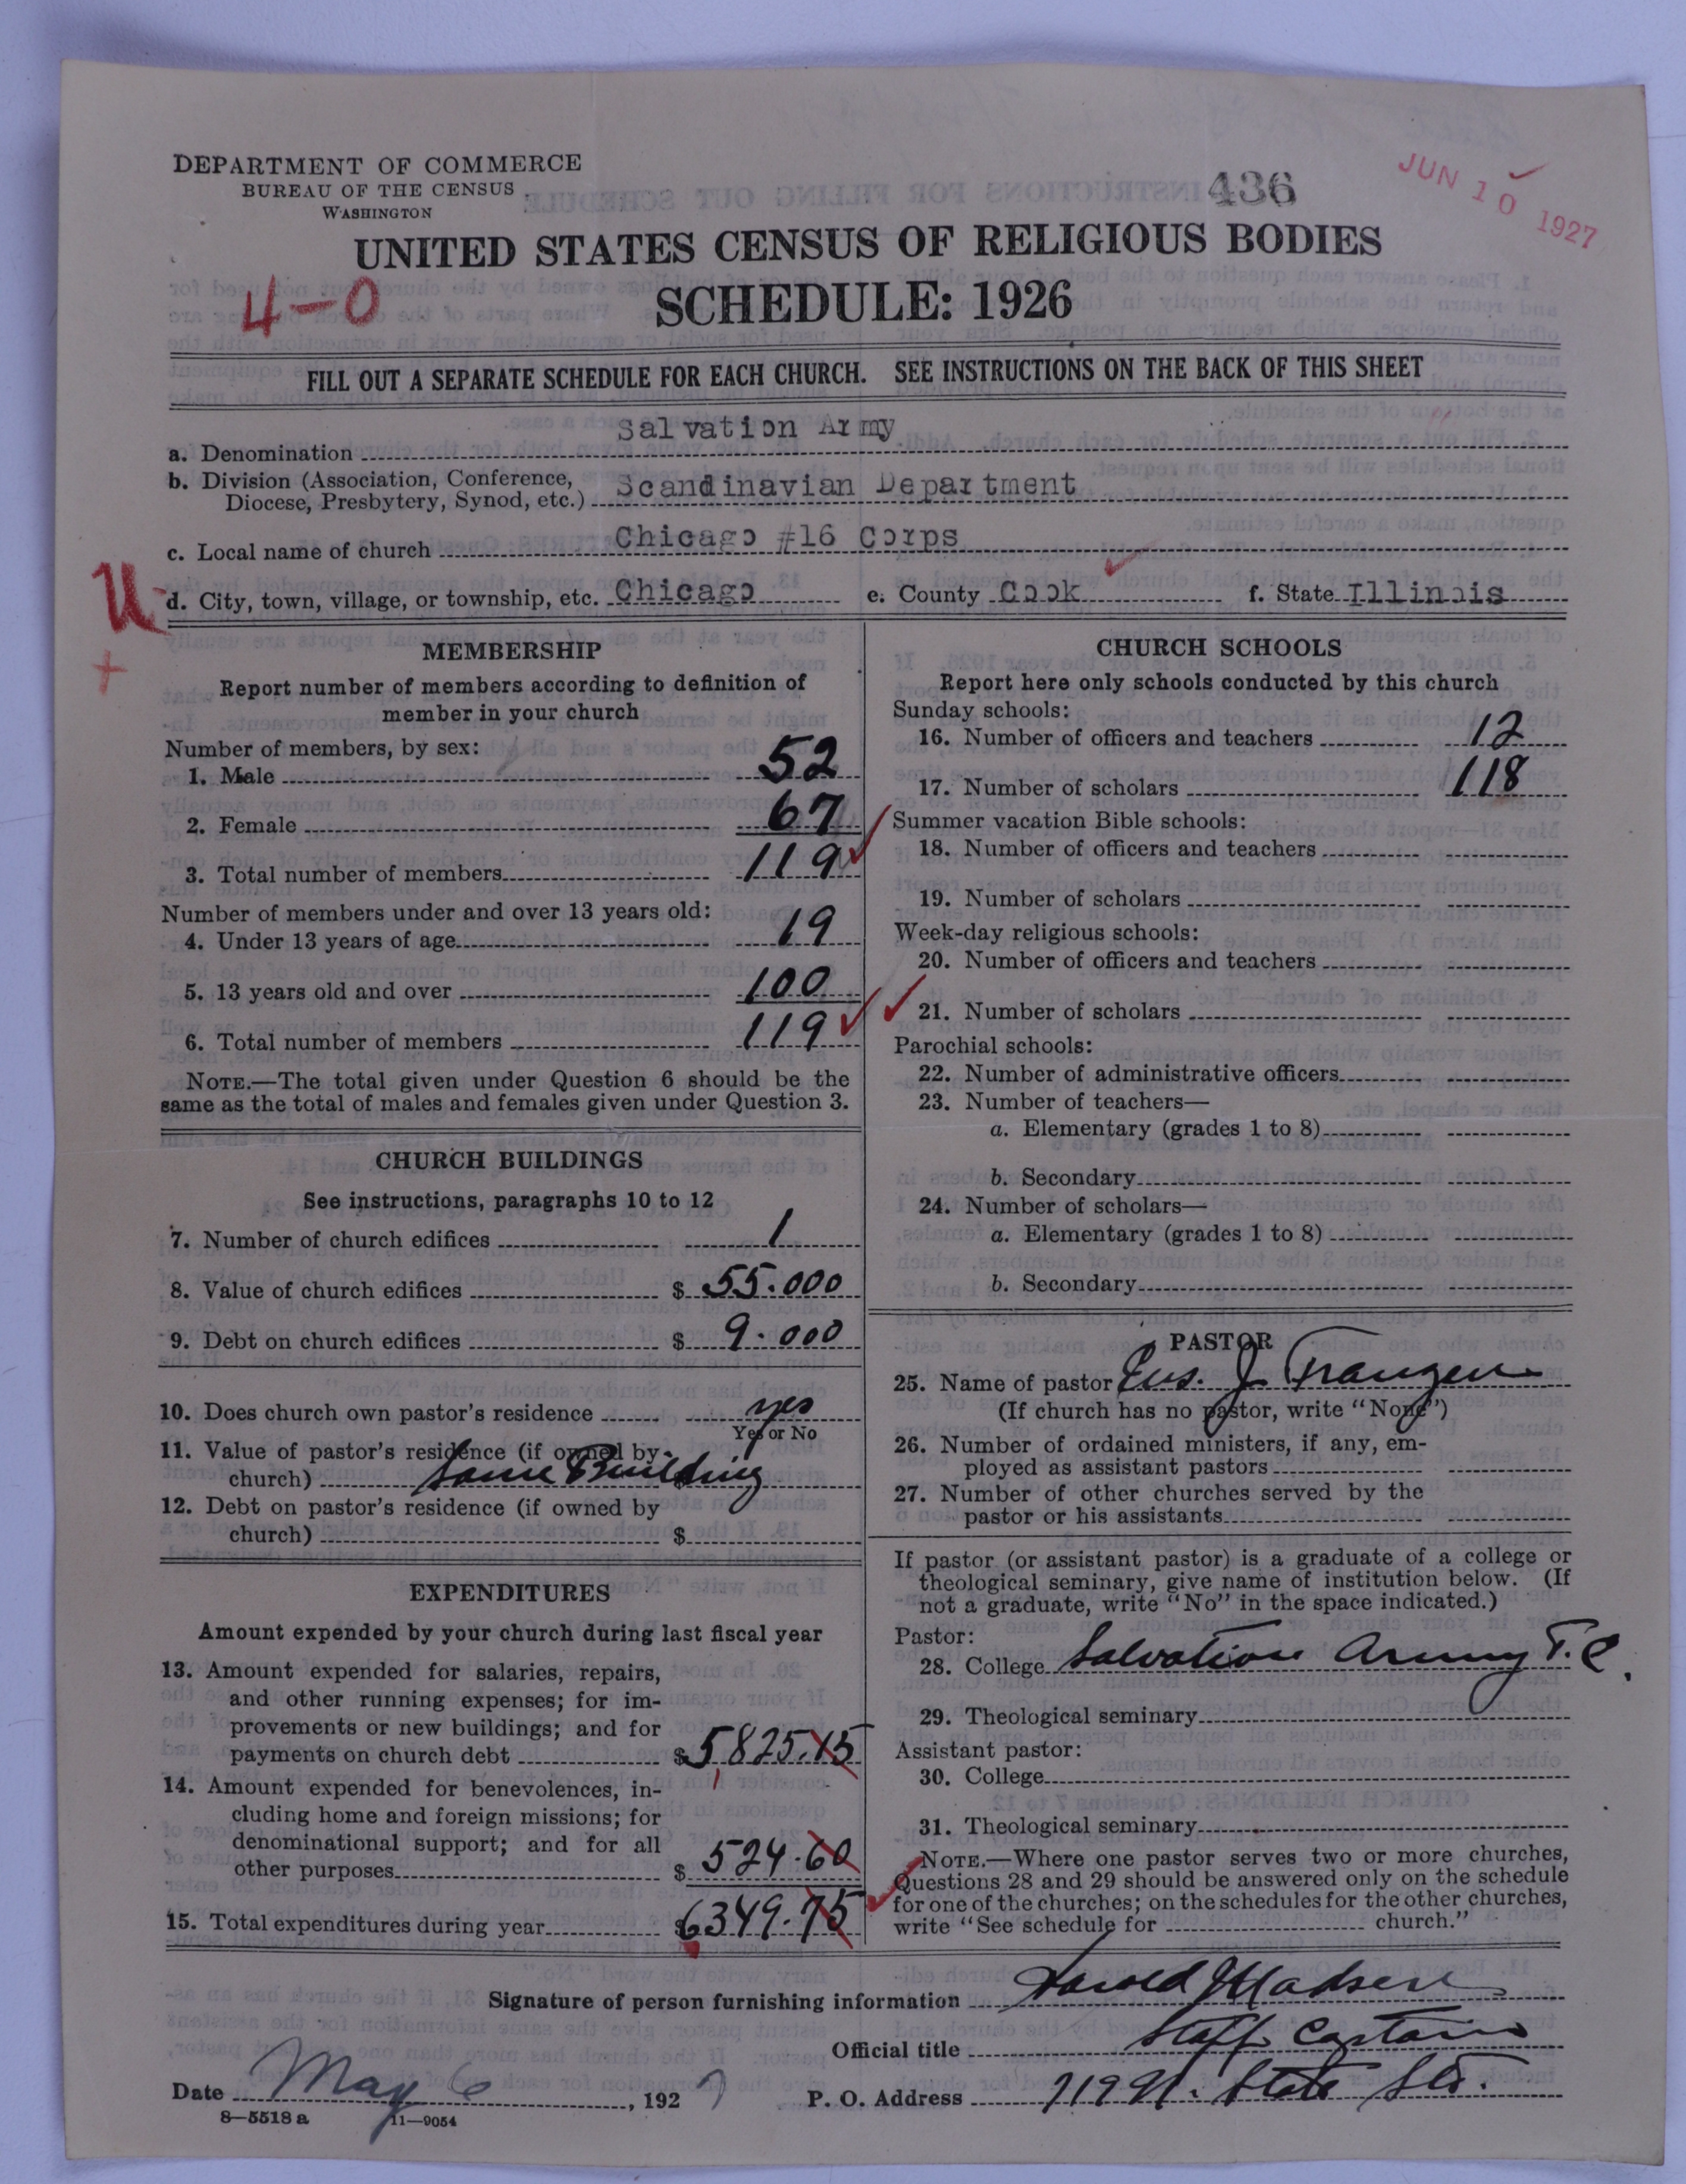 DEPARTMENT OF COMMERCE
BUREAU OF THE CENSUS
WASHINGTON
436
JUN 10 1927
UNITED STATES CENSUS OF RELIGIOUS BODIES
4-0
SCHEDULE: 1926
FILL OUT A SEPARATE SCHEDULE FOR EACH CHURCH. SEE INSTRUCTIONS ON THE BACK OF THIS SHEET
a. Denomination Salvation Army
b. Division (Association, Conference,
Diocese, Presbytery, Synod, etc.) Scandinavian Department
c. Local name of church Chicago #16 Corps
U
d. City, town, village, or township, etc. Chicago e. County Cook f. State Illinois
+
MEMBERSHIP
Report number of members according to definition of
member in your church
Number of members, by sex:
1. Male 52
2. Female 67
3. Total number of members 119
Number of members under and over 13 years old:
4. Under 13 years of age 19
5. 13 years old and over 100
6. Total number of members 119
NOTE.—The total given under Question 6 should be the
same as the total of males and females given under Question 3.
CHURCH BUILDINGS
See instructions, paragraphs 10 to 12
7. Number of church edifices 1
8. Value of church edifices $ 55.000
9. Debt on church edifices $ 9.000
10. Does church own pastor's residence yes
Yes or No
11. Value of pastor's residence (if owned by
church) Same Building $
12. Debt on pastor's residence (if owned by
church) $
EXPENDITURES
Amount expended by your church during last fiscal year
13. Amount expended for salaries, repairs,
and other running expenses; for im-
provements or new buildings; and for
payments on church debt $ 5,825.15
14. Amount expended for benevolences, in-
cluding home and foreign missions; for
denominational support; and for all
other purposes $ 524.60
15. Total expenditures during year $ 6349.75
CHURCH SCHOOLS
Report here only schools conducted by this church
Sunday schools:
16. Number of officers and teachers 12
17. Number of scholars 118
Summer vacation Bible schools:
18. Number of officers and teachers
19. Number of scholars
Week-day religious schools:
20. Number of officers and teachers
21. Number of scholars
Parochial schools:
22. Number of administrative officers
23. Number of teachers—
a. Elementary (grades 1 to 8)
b. Secondary
24. Number of scholars—
a. Elementary (grades 1 to 8)
b. Secondary
PASTOR
25. Name of pastor Ens. J Franzen
(If church has no pastor, write "None")
26. Number of ordained ministers, if any, em-
ployed as assistant pastors
27. Number of other churches served by the
pastor or his assistants
If pastor (or assistant pastor) is a graduate of a college or
theological seminary, give name of institution below. (If
not a graduate, write "No" in the space indicated.)
Pastor:
28. College Salvation Army T.C.
29. Theological seminary
Assistant pastor:
30. College
31. Theological seminary
NOTE.—Where one pastor serves two or more churches,
Questions 28 and 29 should be answered only on the schedule
for one of the churches; on the schedules for the other churches,
write "See schedule for church."
Signature of person furnishing information Harold Madsen
Official title Staff Captain
Date May 6, 1927 P. O. Address 719 N. State Str.
8—5518 a 11—9054